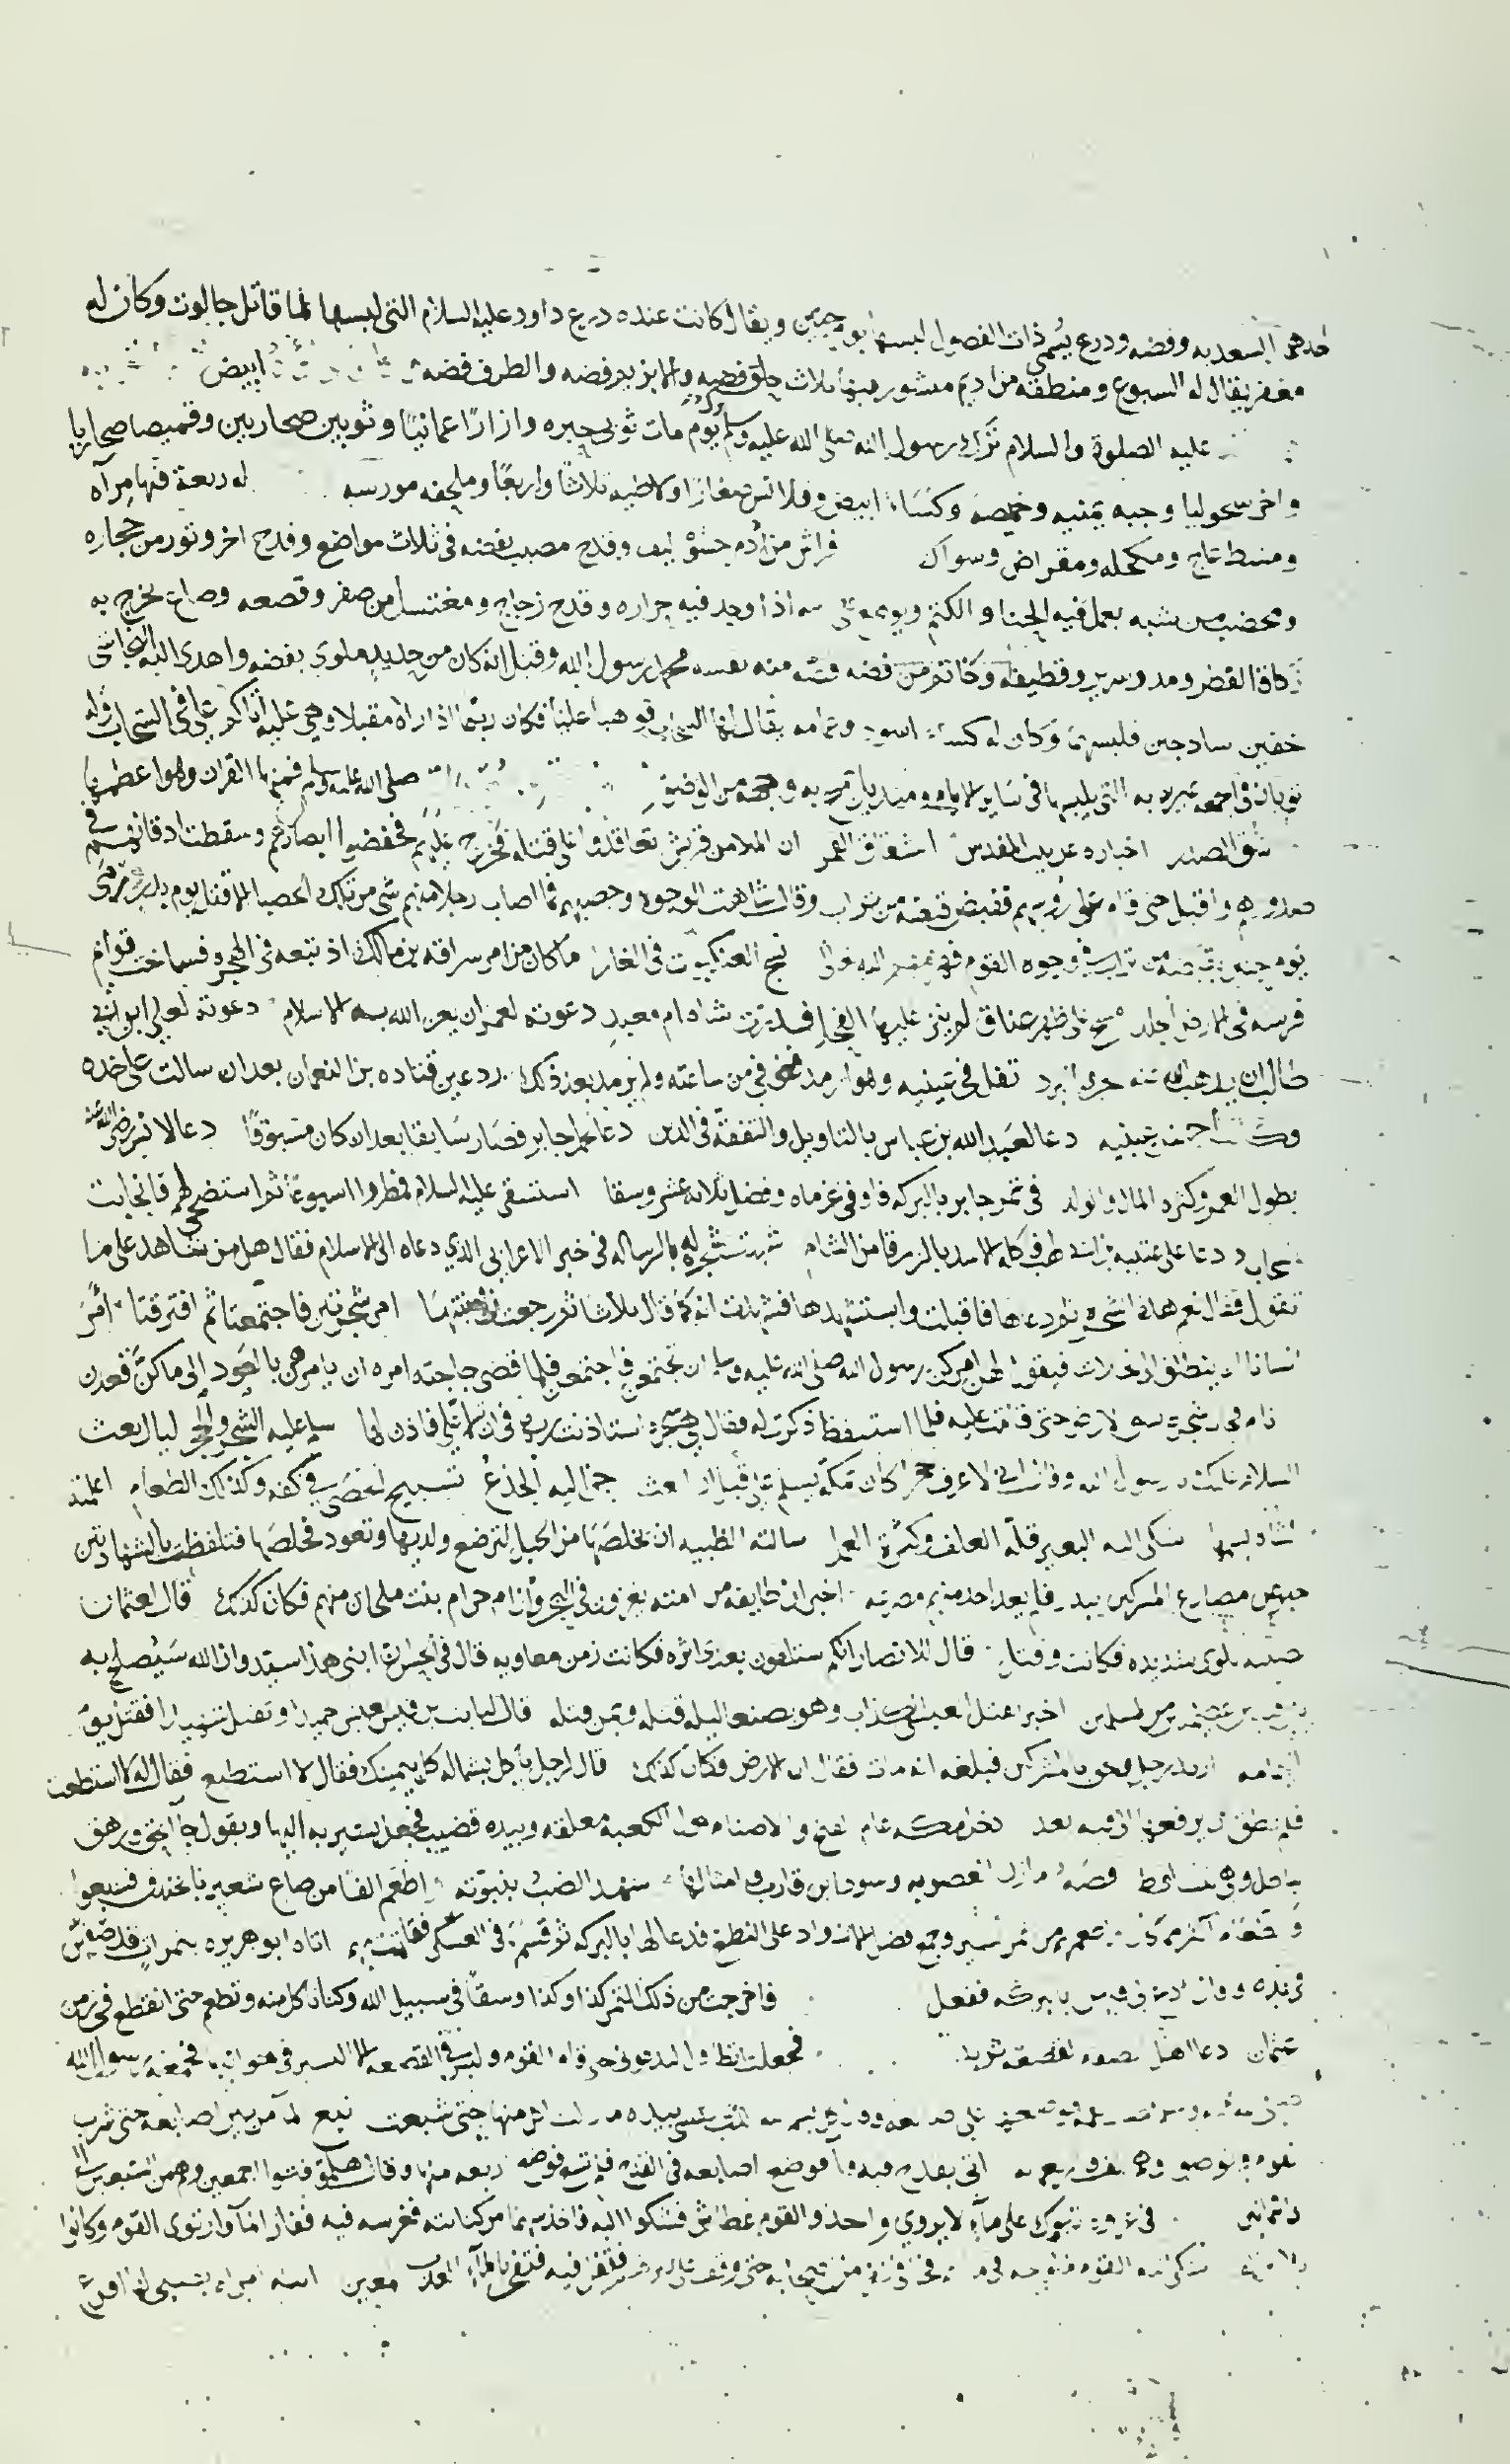 احدهما السعديه وفضه ودرع يسمى ذات الفضول لبسها يوم حنين ويقال كانت عنده درع داود عليه السلام التى لبسها لما قاتل جالوت وكان له
مغفر يقال له السبوغ ومنطقه من اديم منشور فيها ثلاث حلق فضه والابزيم فضه والطرف فضه ابيض
عليه الصلوة والسلام ترك رسول الله صلى الله عليه وسلم يوم مات ثوبى حبره وازارا عمانيا وثوبين صحاريين وقميصا صحاريا
واخر سحوليا وجبه يمنيه وخميصه وكساء ابيض وقلانس صغارا لاطيه ثلاثا واربعا وملحفه مورسه له ربعة فيها مرآه
ومشط عاج ومكحله ومقراض وسواك فراش من أدم حشوه ليف وقدح مضبب بفضه فى ثلاث مواضع وقدح اخر وتور من حجاره
ومخضب من شبه يعمل فيه الحنا والكتم ويوضع على اذا وجد فيه حراره وقدح زجاج ومغتسل من صفر وقصعه وصاع يخرج به
زكاة الفطر ومد وسرير وقطيفه وخاتم من فضه فصه منه نقشه محمد رسول الله وقيل انه كان من حديد ملوى بفضه واهدى اليه النجاشى
خفين ساذجين فلبسهما وكان له كساء اسود وعمامه يقال لها السحاب فوهبها عليا فكان ربما اذا راه مقبلا وهى عليه اتاكم على فى السحاب وله
ثوبان فى الجمعه غير به التى يلبسها فى ساير الايام ومنديل يمسح به وجهه من الوضو صلى الله عليه وسلم فمنها القران وهو اعظمها
شق الصدر اخباره عن بيت المقدس انشقاق القمر ان الملا من قريش تعاقدوا على قتله فخرج عليهم فخفضوا ابصارهم وسقطت اذقانهم فى
صدورهم واقبل حتى قام على روسهم فقبض قبضة من تراب وقال شاهت الوجوه وحصبهم فما اصاب رجلا منهم شى من تلك الحصبا الا قتل يوم بدر رمى
يوم حنين بقبضه من تراب فى وجوه القوم فهزمهم الله تعالى نسج العنكبوت فى الغار ما كان من امر سراقه بن مالك اذ تبعه فى الهجره فساخت قوائم
فرسه فى الارض الجلد مسح على ظهر عناق لم ينز عليها الفحل فدرت شاه ام معبد دعوته لعمر ان يعز الله به الاسلام دعوته لعلى ابن ابى
طالب ان يذهب الله عنه الحر والبرد تفل فى عينيه وهو ارمد فعوفى من ساعته ولم يرمد بعد ذلك رد عين قتاده بن النعمان بعد ان سالت على خده
وكانت احسن عينيه دعا لعبد الله بن عباس بالتاويل والتفقه فى الدين دعا لجمل جابر فصار سابقا بعد ان كان مسبوقا دعا لانس رضى الله عنه
بطول العمر وكثرة المال والولد فى تمر جابر بالبركه فاوفى غرماه وفضل ثلاثه عشر وسقا استسقى عليه السلام فمطروا اسبوعا ثم استصحى لهم فانجابت
السحاب دعا على عتيبه بن ابى لهب فاكله الاسد بالزرقا من الشام شهدت شجره له بالرساله فى خبر الاعرابى الذى دعاه الى الاسلام فقال هل من شاهد على ما
تقول قال نعم هذه الشجره ثم دعاها فاقبلت واستشهدها فشهدت انه كما قال ثلاثا ثم رجعت الى منبتها امر شجرتين فاجتمعتا ثم افترقتا أمر
انسا ان ينطلق الى نخلات فيقول لهن امركن رسول الله صلى الله عليه وسلم ان تجتمعن فاجتمعن فلما قضى حاجته امره ان يامرهن بالعود الى ماكن فعدن
نام فجات شجره تشق الارض حتى قامت عليه فلما استيقظ ذكرت له فقال هى شجره استاذنت ربها فى ان تسلم على فاذن لها سلم عليه الشجر والحجر ليالى بعث
السلام عليك يا رسول الله وقال انى لاعرف حجرا كان بمكة يسلم على قبل ان ابعث حن اليه الجذع تسبيح الحصى فى كفه وكذلك الطعام اعلمته
الشاه بسمها شكى اليه البعير قلة العلف وكثرة العمل سالته الظبيه ان يخلصها من الحبل لترضع ولديها وتعود فخلصها فتلفظت بالشهادتين
مصارع المشركين ببدر فلم يعد احد منهم مصرعه اخبر ان طايفه من امته يغزون فى البحر وان ام حرام بنت ملحان منهم فكان كذلك قال لعثمان
تصيبه بلوى شديده فكانت وقتل قال للانصار انكم ستلقون بعدى اثره فكانت زمن معاويه قال فى الحسن ان ابنى هذا سيد وان الله سيصلح به
بين فئتين عظيمتين من المسلمين اخبر بقتل العنسى الكذاب وهو بصنعا ليلة قتله وبمن قتله قال لثابت بن قيس تعيش حميدا وتقتل شهيدا فقتل يوم
اليمامه ارتد رجل ولحق بالمشركين فبلغه انه مات فقال ان الارض لا تقبله فكان كذلك قال لرجل ياكل بشماله كل بيمينك فقال لا استطيع فقال له لا استطعت
فلم يطق ان يرفعها الى فيه بعد دخل مكه عام الفتح والاصنام حول الكعبة معلقه وبيده قضيب فجعل يشير به اليها ويقول جا الحق وزهق
الباطل وهى تتساقط قصة مازن بن الغضوبه وسواد بن قارب وامثالها شهد الضب بنبوته اطعم الفا من صاع شعير بالخندق فشبعوا
والطعام اكثر مما كان واطعمهم من تمر يسير وجمع فضل الازواد على النطع فدعا لها بالبركه ثم قسمه فى العسكر فقامت بهم اتاه ابو هريره بتمرات قد صفهن
فى يده وقال ادع لى فيهن بالبركه ففعل فاخرجت من ذلك التمر كذا وكذا وسقا فى سبيل الله وكنا ناكل منه ونطعم حتى انقطع فى زمن
عثمان دعا اهل الصفه لقصعه ثريد فجعلت اتطاول ليدعونى حتى قام القوم وليس فى القصعه الا اليسير فى نواحيها فجمعه رسول الله
صلى الله عليه وسلم فصار لقمه فوضعها على اصابعه وقال كل بسم الله فوالذى نفسى بيده ما زلت اكل منها حتى شبعت نبع الما من بين اصابعه حتى شرب
القوم وتوضوا وهم الف واربعمايه اتى بقدح فيه ما فوضع اصابعه فى القدح فلم تسع فوضع اربعه منها وقال هلموا فتوضوا اجمعين وهم من السبعين الى
الثمانين فى غزوه تبوك على ماء لا يروى واحدا والقوم عطاش فشكوا اليه فاخذ سهما من كنانته فغرسه فيه ففار الماء وارتوى القوم وكانوا